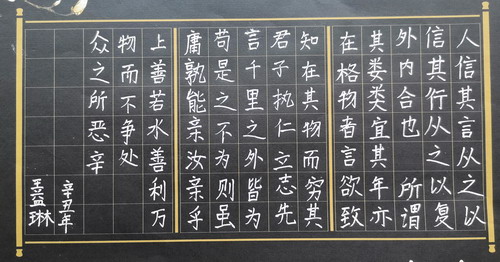 人信其言从之以
信其行从之以复
外内合也所谓
其娄类宜其年亦
在格物者言欲致
知在其物而穷其
君子执仁立志先
言千里之外皆为
苟是之不为则虽
庸孰能亲汝亲乎
上善若水善利万
物而不争处
众之所恶辛
辛丑年
王益琳